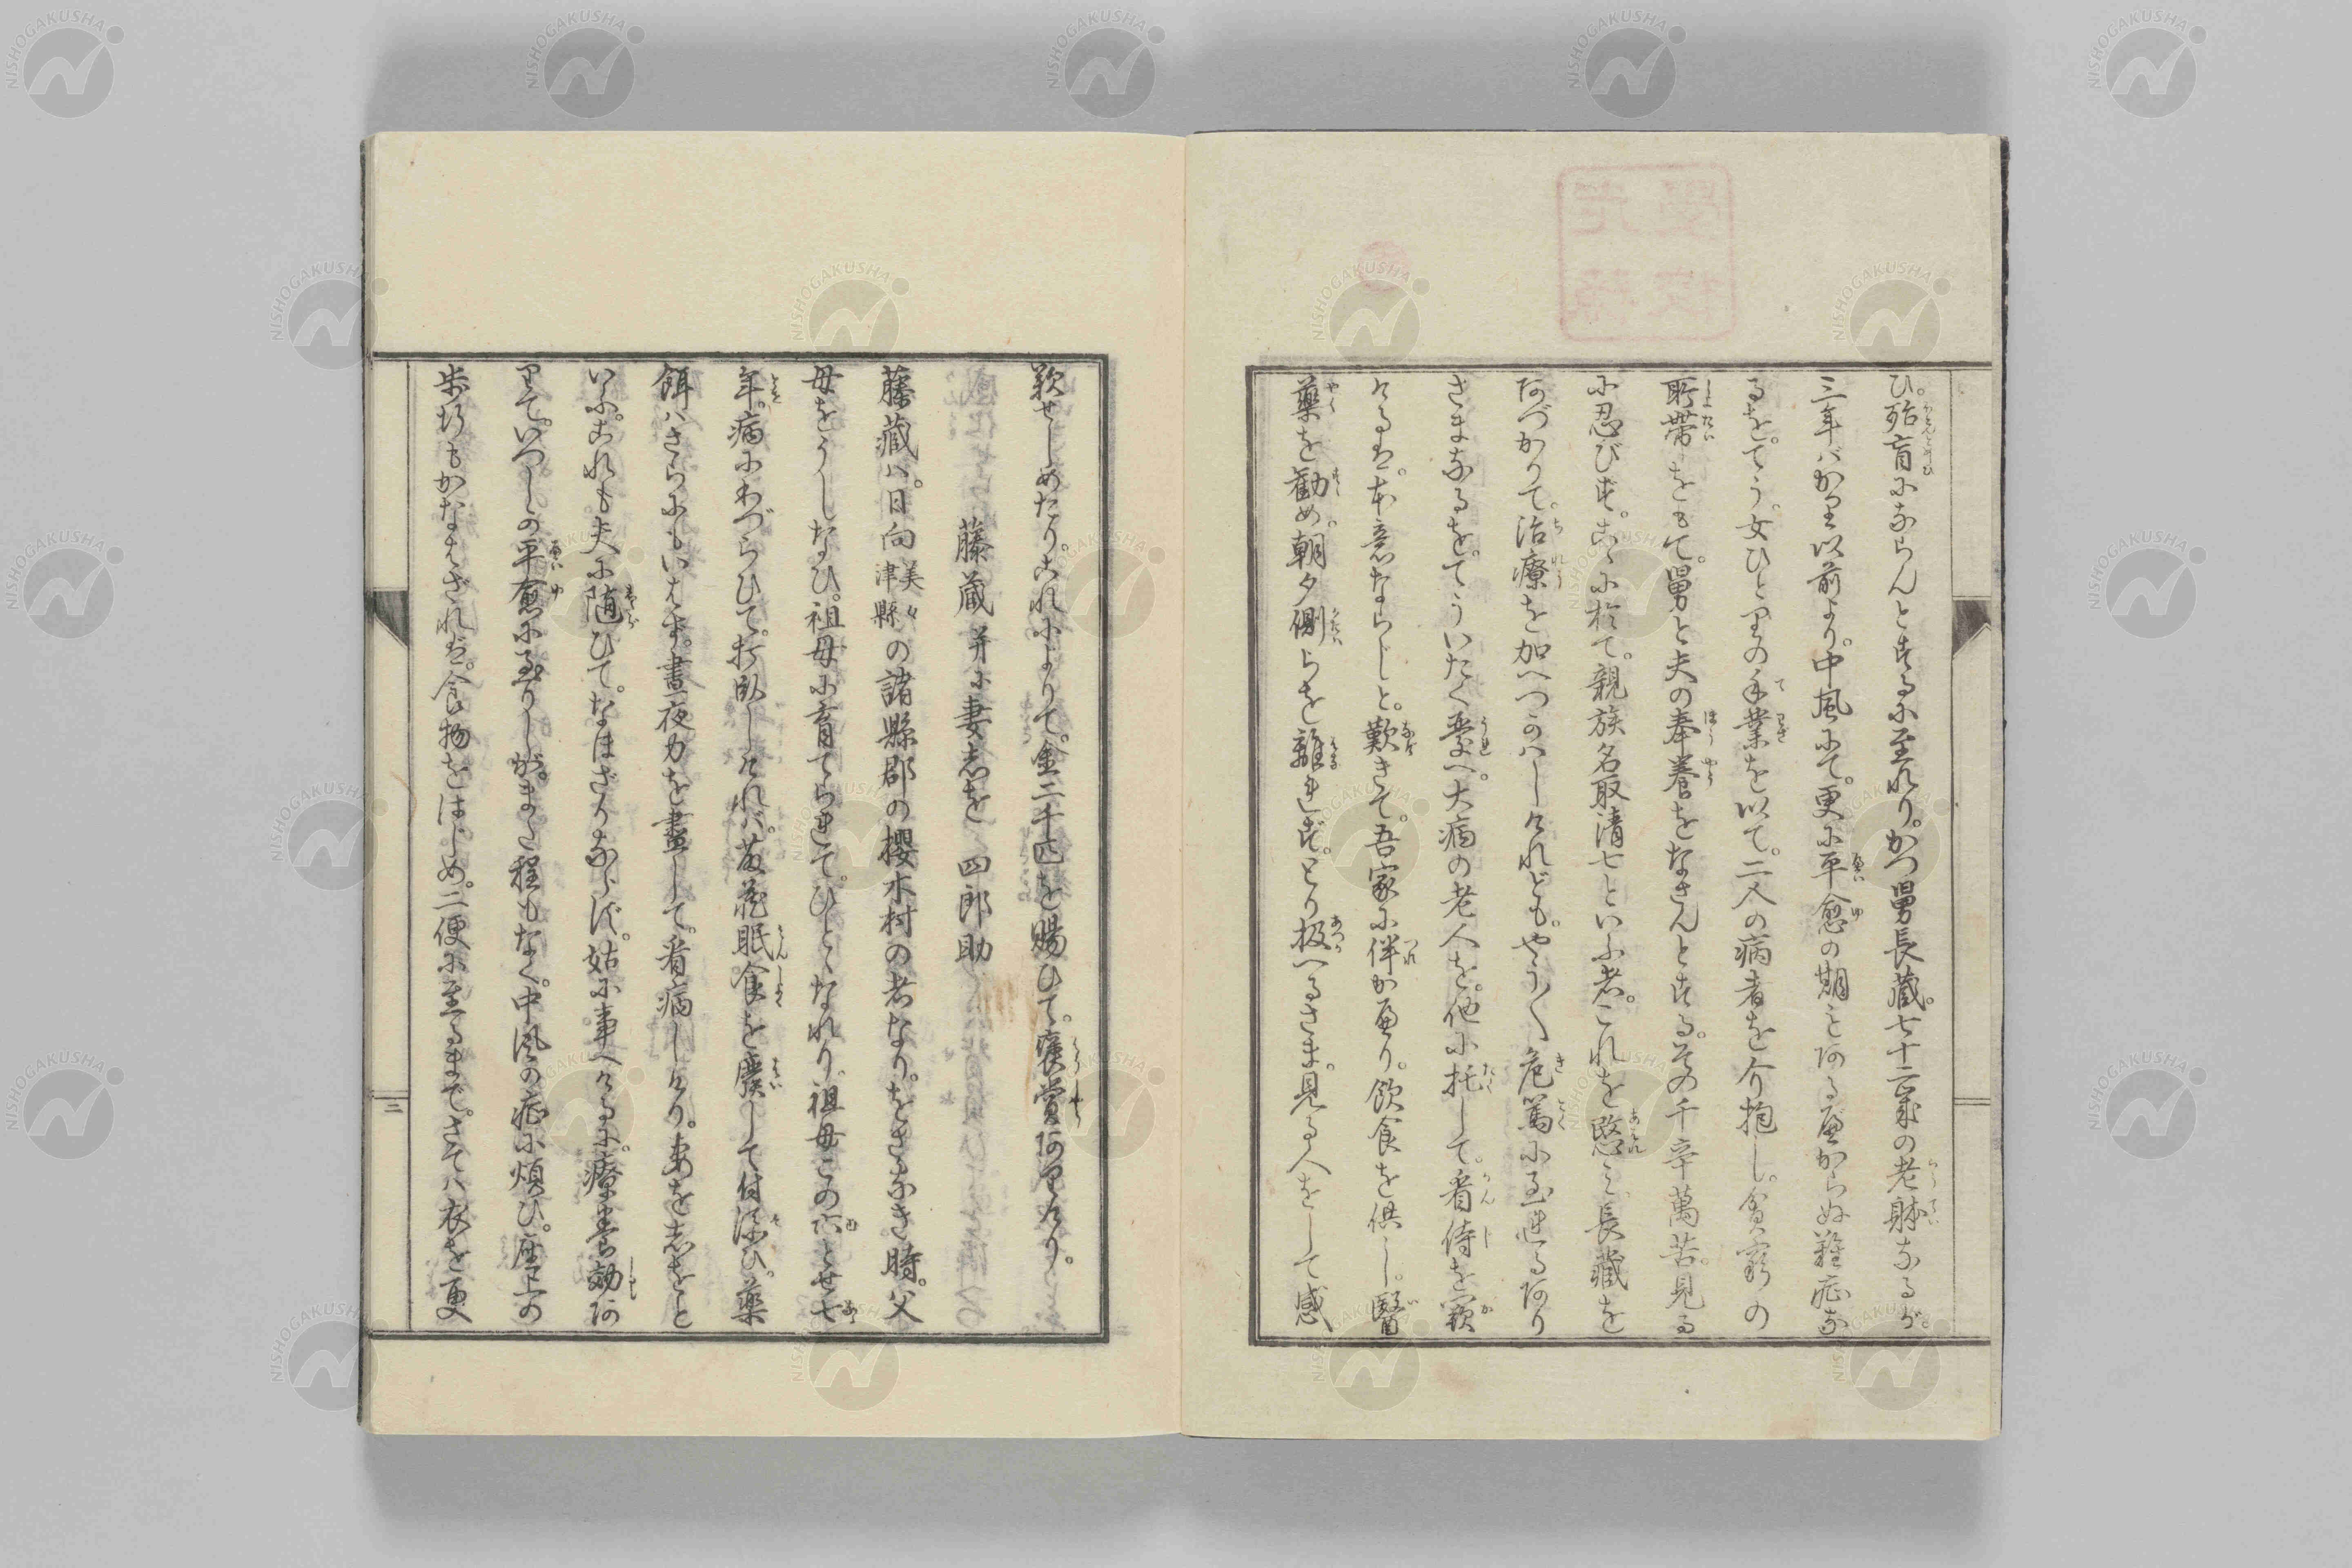 ひ。殆盲にならんとするに至れり。かつ舅長蔵。七十二歳の老躰なるが。
三年バかり以前より。中風にて。更に平愈の期もあるべからぬ難症な
るを。てう。女ひとりの手業を以て。二人の病者を介抱し。貧窮の
所帯をもて。舅と夫の奉養をなさんとする。その千辛萬苦。見る
に忍びず。こゝに於て。親族名取清七といふ者。これを愍み。長蔵を
あづかりて。治療を加へつかハしけれども。やう〱危篤に至れるあり
さまなるを。てういたく憂へ。大病の老人を。他に托して。看侍を窾
けるは。本意ならじと。歎きて。吾家に伴かへり。飲食を供し。醫
藥を勧め。朝夕側らを離れず。とり扱へるさま。見る人をして感
歎せしめたり。これによりて。金二千匹を賜ひて。褒賞ありけり。
藤蔵并に妻志を　四郎助
藤蔵ハ。日向美々津縣の諸縣郡の櫻木村の者なり。をさなき時。父
母をうしなひ。祖母に育てられて。ひとゝなれり。祖母この六とせ七
年。病にわづらひて。打臥しけれバ。藤蔵眠食を廢して付添ひ。藥
餌ハさらにもいはず。晝夜力を盡して。看病しけり。妻を志をと
いふ。これも夫に随ひて。なほざりならず。姑に事へけるに。療養効あ
りて。いつしか平愈に至りしが。また程もなく。中風の症に煩ひ。座上の
歩行もかなはざれば。食物をはじめ。二便に至るまで。さてハ衣を更
三